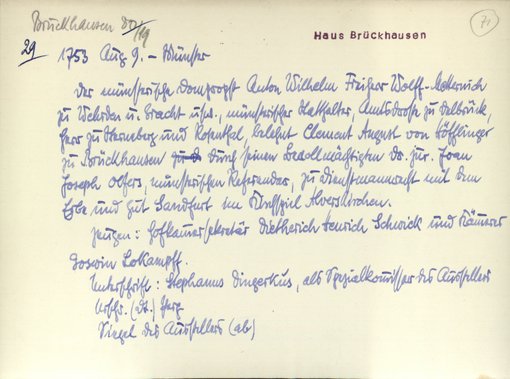 Brückhausen
Haus Brückhausen
71
29
1753 Aug 9. - Münster
Der münsterische Dompropst Anton Wilhelm Freiherr Wolff-Metternich
zu Wehrden u. Gracht usw., münsterischer Statthalter, Amtsdroste zu Delbrück,
Herr zu und Rosenthal, belehnt Clement August von Höfflinger
zu Brückhausen durch seinen Bevollmächtigten Dr. jur. Joan
Joseph Olfers, münsterischen Referendar, zu Dienstmannrecht mit dem
Erbe und Gut Sandfurt im Kirchspiel Alverskirchen.
Zeugen: Hofkammersekretär Dietherich Henrich Schwick und Kämmerer
Goswin Lokampff.
Unterschrift: Stephanus Dingerkus, als Spezialkommissar des Ausstellers
Urschr. (Dt.) Perg
Siegel des Ausstellers (ab)